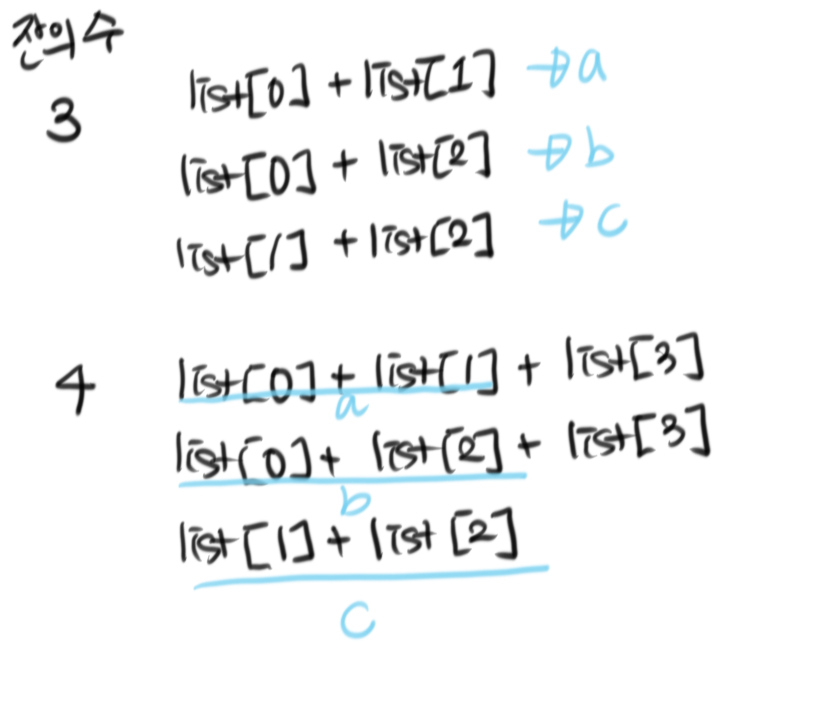 잔의수
3
list[0] + list[1] → a
list[0] + list[2] → b
list[1] + list[2] → c
4
list[0] + list[1] + list[3]
a
list[0] + list[2] + list[3]
b
list[1] + list[2]
c